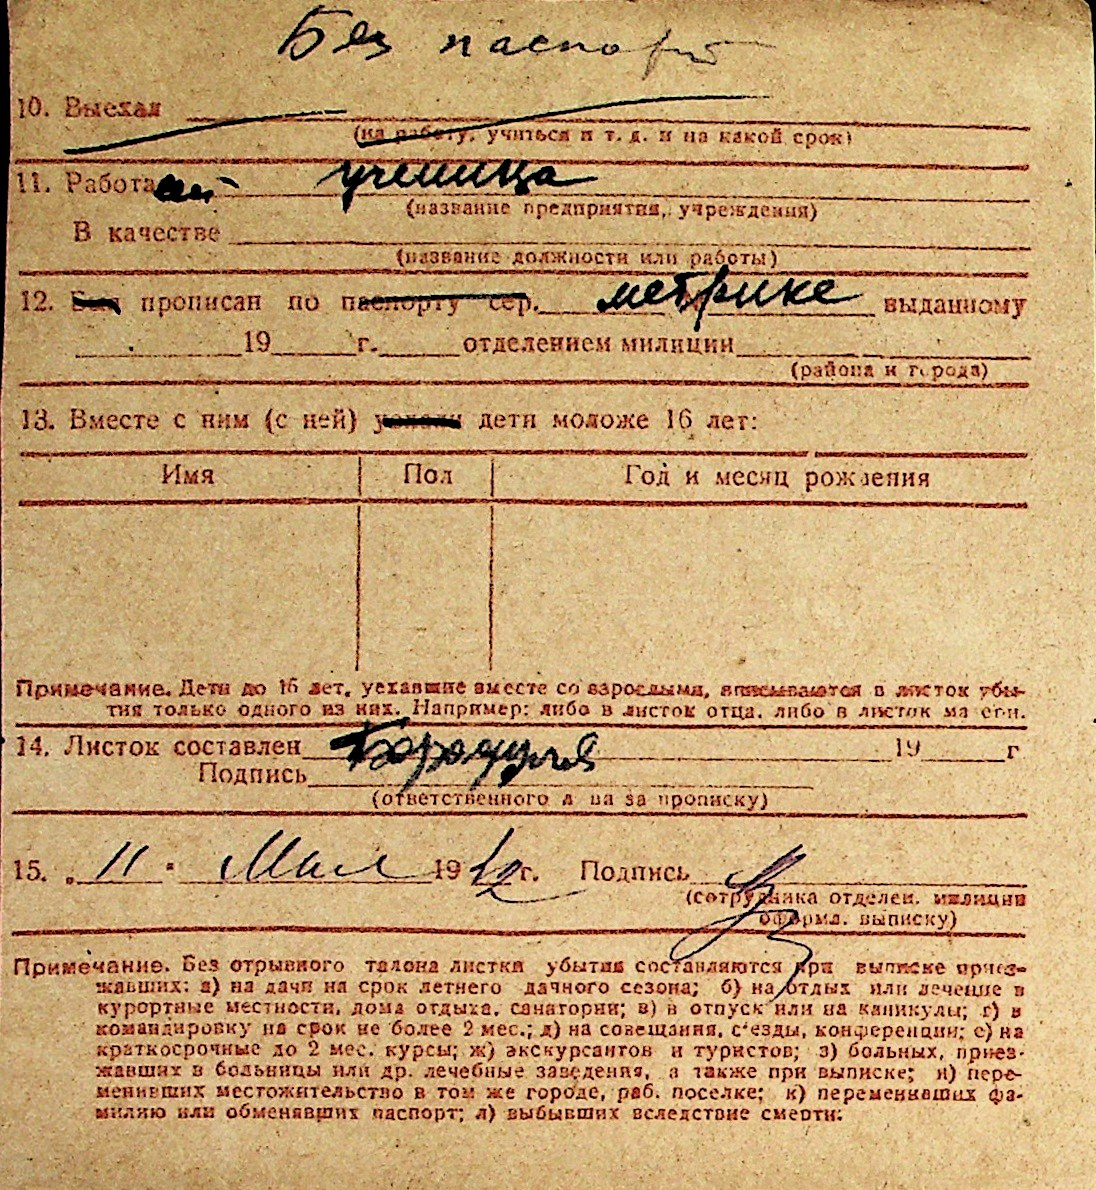 Без паспорта
10. Выехал
(на работу, учиться и т. д. и на какой срок)
11. Работа ученица
(название предприятия, учреждения)
В качестве
(название должности или работы)
12. прописан по паспорту сер. метрике выданному
19 г. отделением милиции
(района и города)
13. Вместе с ним (с ней) дети моложе 16 лет:
Имя Пол Год и месяц рождения
Примечание. Дети до 16 лет, уехавшие вместе со взрослыми, вписываются в листок убы-
тия только одного из них. Например: либо в листок отца, либо в листок матери.
14. Листок составлен 19 г
Подпись
(ответственного лица за прописку)
15. „ 11 " Мая 1942 г. Подпись
(сотрудника отделен. милиции
оформл. выписку)
Примечание. Без отрывного талона листки убытия составляются при выписке приез-
жавших: а) на дачи на срок летнего дачного сезона; б) на отдых или лечение в
курортные местности, дома отдыха, санатории; в) в отпуск или на каникулы; г) в
командировку на срок не более 2 мес.; д) на совещания, с'езды, конференции; е) на
краткосрочные до 2 мес. курсы; ж) экскурсантов и туристов; з) больных, приез-
жавших в больницы или др. лечебные заведения, а также при выписке; и) пере-
менивших местожительство в том же городе, раб. поселке; к) переменивших фа-
милию или обменявших паспорт; л) выбывших вследствие смерти.